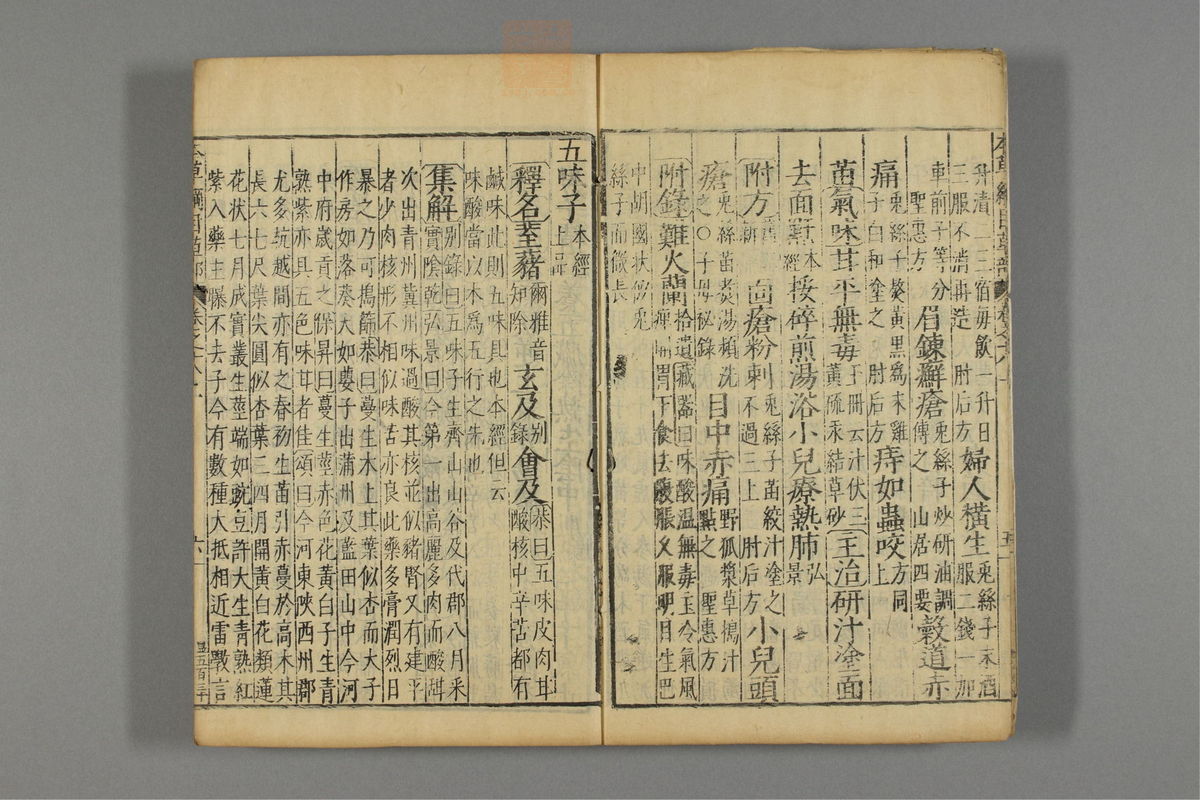 升漬二三宿毎飲一升日
三服不消再造肘后方
婦人橫生
兎絲子末酒
服二錢一
車前子等分
聖惠方
眉鍊癬瘡
兎絲子炒研油調
傅之山居四要
穀道赤
痛
兎絲子熬黃黑爲末雞
子白和塗之肘后方
痔如蟲咬
方同
上
苗氣味甘平無毒
玉冊云汁伏三
黃硫汞結草砂
主治研汁塗面
去面䵟
本
經
挼碎煎湯浴小兒療熱肺
弘
景
附方
面瘡粉刺
兎絲子苗絞汁塗之
不過三上肘后方
小兒頭
瘡
兎絲苗煑湯頻洗
之〇子母秘錄
目中赤痛
野狐漿草搗汁
點之聖惠方
附錄難火蘭
拾遺藏器曰味酸溫無毒主冷氣風
痺開胃下食去腹脹久服明目生巴
中胡國狀似兎
絲子而微長
五味子
本經
上品
釋名荎藸
爾雅音
知除
玄及
別
錄
會及
恭曰五味皮肉甘
酸核中辛苦都有
鹹味此則五味具也本經但云
味酸當以木爲五行之先也
集解
別錄曰五味子生齊山山谷及代郡八月采
實陰乾弘景曰今第一出高麗多肉而酸甜
次出青州冀州味過酸其核並似豬腎又有建平
者少肉核形不相似味苦亦良此藥多膏潤烈日
暴之乃可搗篩恭曰蔓生木上其葉似杏而大子
作房如落葵大如蘡子出蒲州及藍田山中今河
中府歲貢之保昇曰蔓生莖赤色花黃白子生青
熟紫亦具五色味甘者佳頌曰今河東陝西州郡
尤多杭越間亦有之春初生苗引赤蔓於高木其
長六七尺葉尖圓似杏葉三四月開黃白花類蓮
花狀七月成實叢生莖端如豌豆許大生青熟紅
紫入藥生曝不去子今有數種大抵相近雷斅言